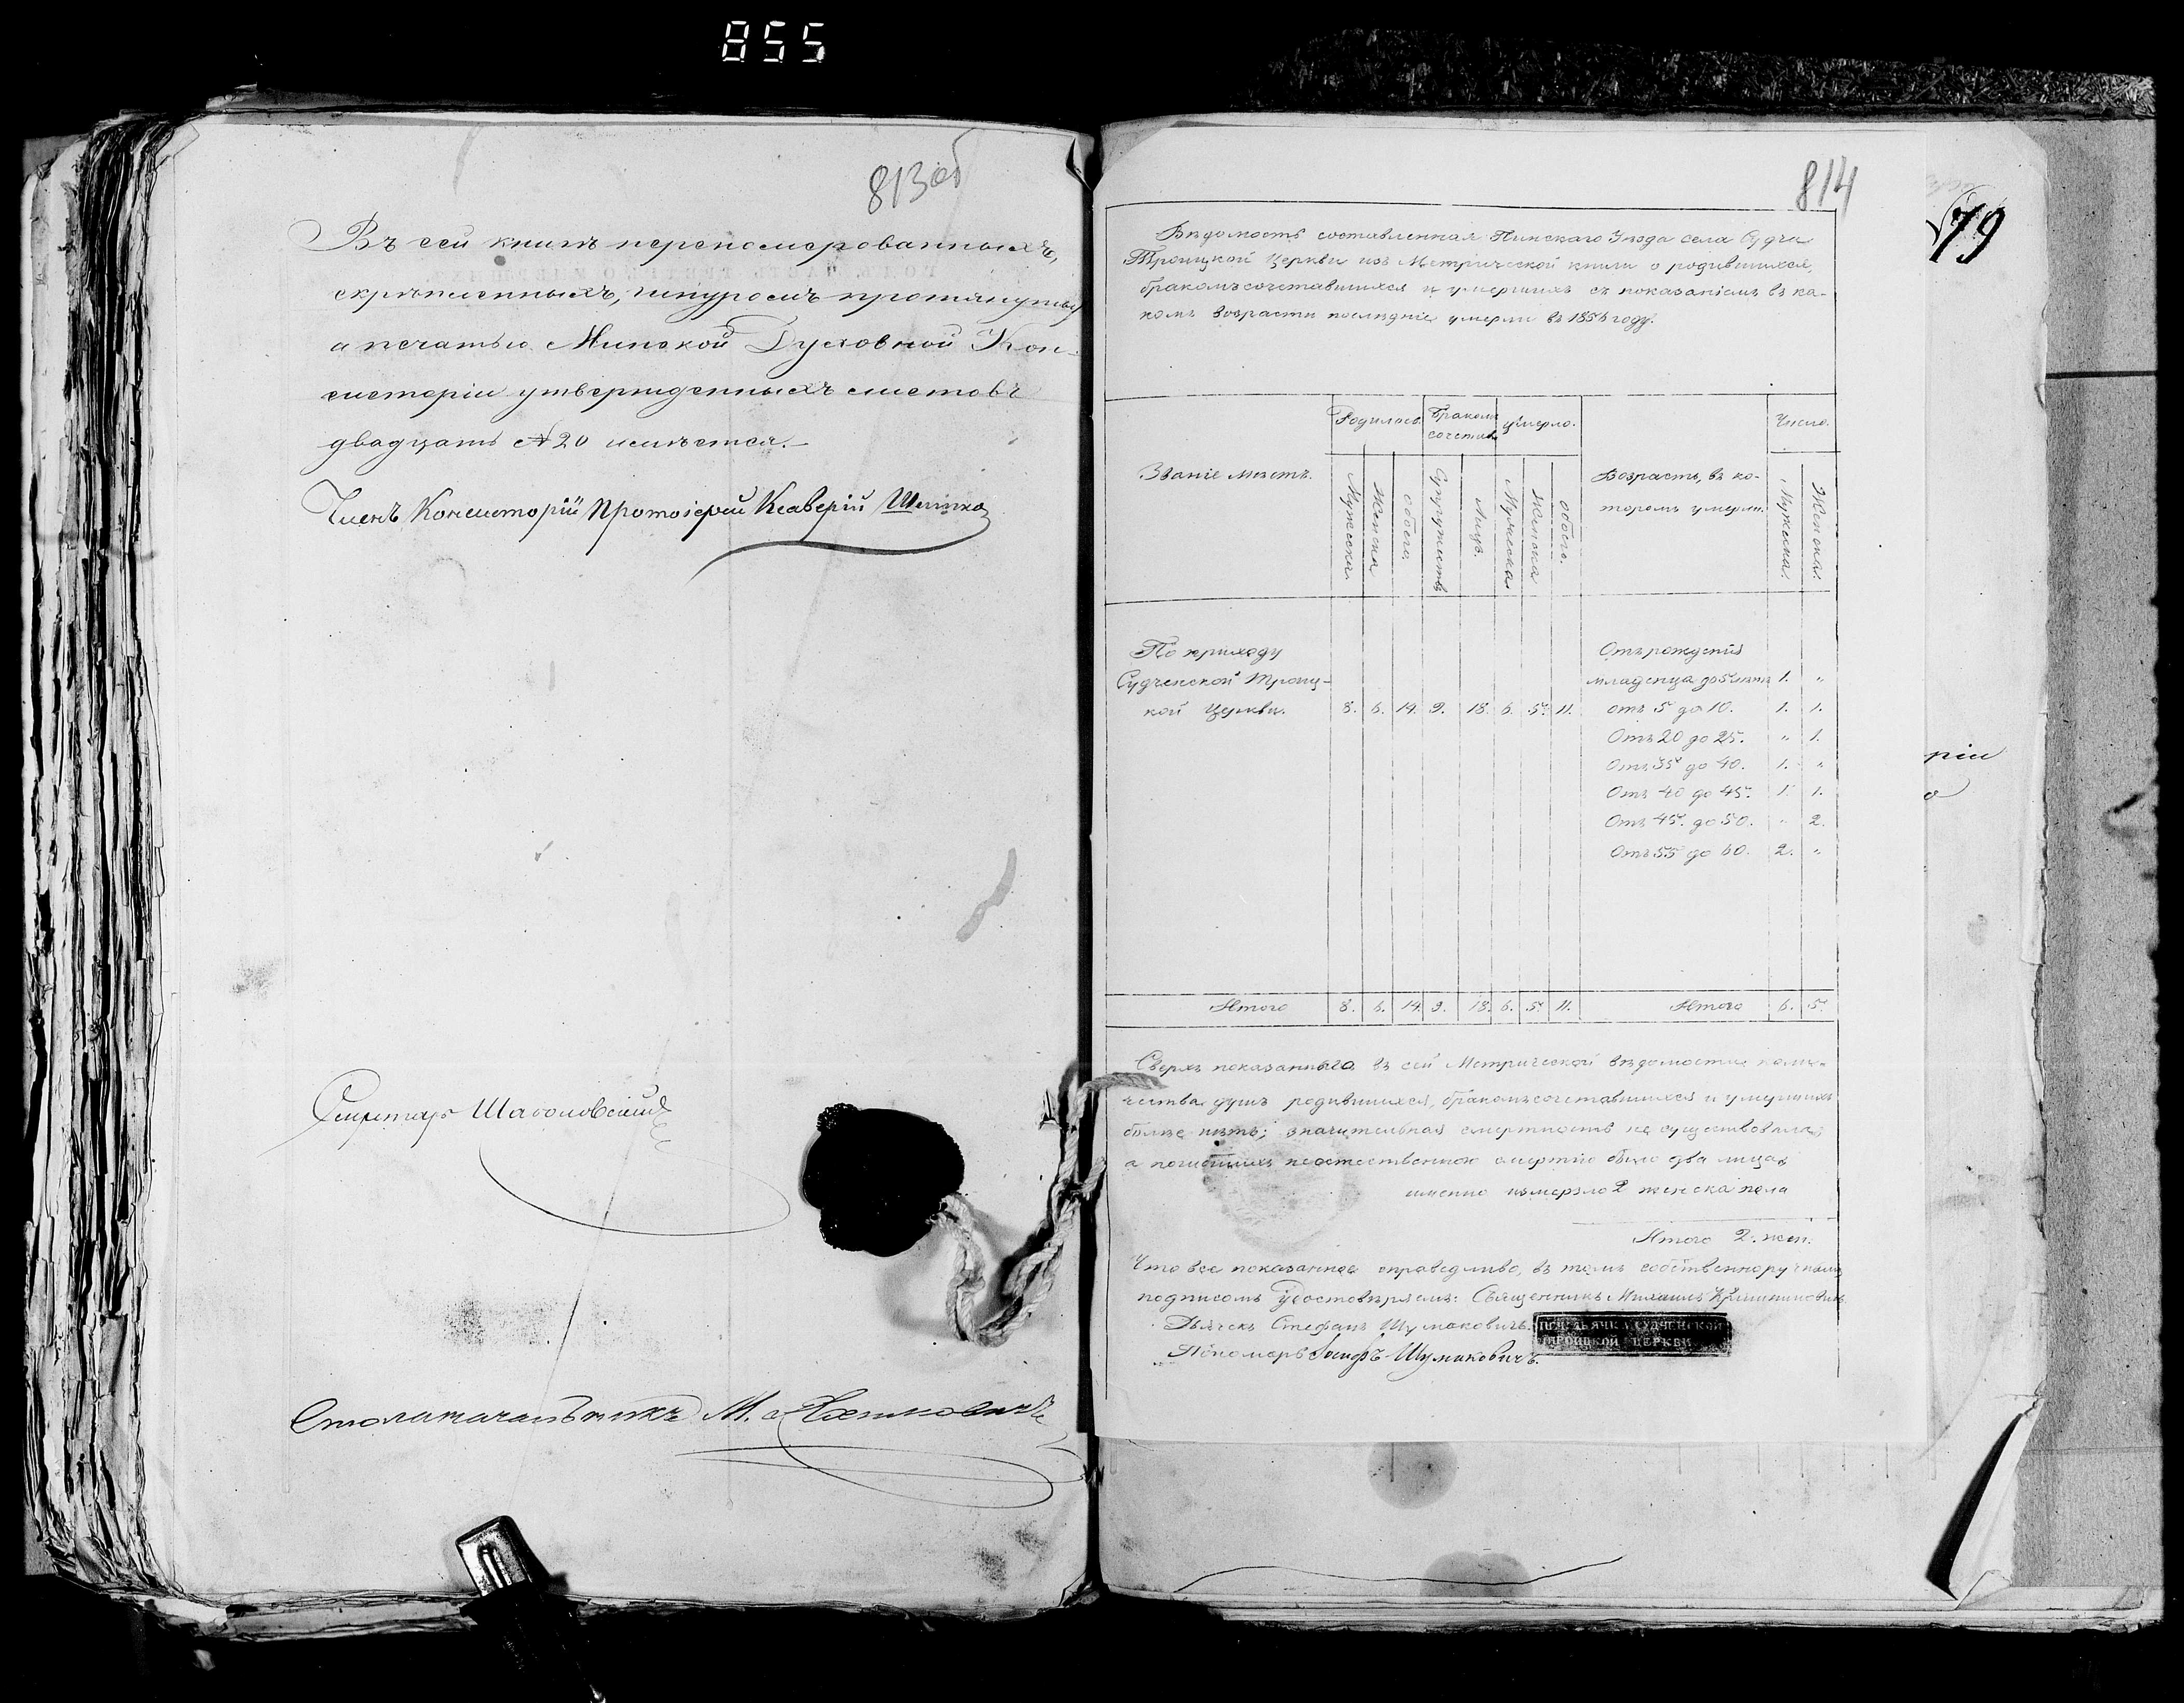 855
813об
Въ сей книгѣ перенумерованныхъ,
скрѣпленныхъ, шнуромъ протянутыхъ
а печатью Минской Духовной Кон-
систоріи утвержденныхъ листовъ
двадцать № 20 имѣется.—
Членъ Консисторіи Протоіерей Ксаверій
Секретарь
Столоначальникъ М.
814
79
Вѣдомость составленная Пинскаго Уѣзда села Судча
Троицкой Церкви изъ Метрической книги о родившихся,
бракомъ сочетавшихся и умершихъ съ показаніемъ въ ка-
комъ возрастѣ послѣдніе умерли въ году.
Званіе мѣстъ.
Родилось.
Бракомъ сочетав.
Умерло.
Возрастъ, въ ко-
торомъ умерли.
Число.
Мужеска.
Женска
обоего.
Супружествъ
Лицъ.
Мужеска
Женска
обоего.
Мужеска.
Женска.
По приходу
Судченской Троиц-
кой Церкви. 8. 6. 14. 9. 18. 6. 5. 11.
Отъ рожденія
младенца до 5 лѣтъ 1. "
отъ 5 до 10. 1. 1.
Отъ 20 до 25. " 1.
Отъ 35 до 40. 1. "
Отъ 40 до 45. 1. 1.
Отъ 45. до 50. " 2.
Отъ 55 до 60. 2. "
Итого 8. 6. 14. 9. 18. 6. 5. 11. Итого 6. 5.
Сверхъ показаннаго въ сей Метрической вѣдомости коли-
чества душъ родившихся, бракомъ сочетавшихся и умершихъ
болѣе нѣтъ; значительная смертность не существовала;
а погибшихъ неестественною смертію было два лица
именно измерзло 2 женска пола
Итого 2. жен.
Что все показанное справедливо, въ томъ собственноручнымъ
подписомъ удостовѣряемъ: Священникъ Михаилъ
Дьячекъ Стефанъ Шумаковичъ.
ПЕЧ. ДЬЯЧКА СУДЧЕНСКОЙ
ТРОИЦКОЙ ЦЕРКВИ
Пономарь Іосифъ Шумаковичъ.
ріи